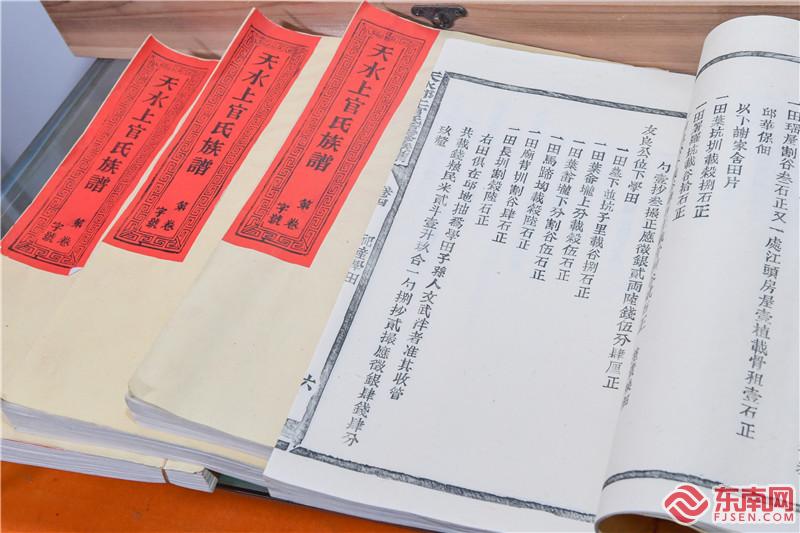 天水上官氏族譜
第 卷
字號
天水上官氏族譜
第 卷
字號
天水上官氏族譜
第 卷
字號
一田葉坑圳載穀捌石正
以下謝家舍田片
邱華傑佃
一田瑶屋割谷叁石正又一處江頭房屋壹植載骨租壹石正
勺壹抄叁撮正應徵銀貳両陸錢伍分肆厘正
友良公位下學田
一田蕉下蓮坑子里載谷捌石正
一田葉畲壠上分載穀伍石正
一田葉畲壠下分割谷伍石正
一田馬蹄坳載穀陸石正
一田廟背圳割谷肆石正
一田長圳割穀陸石正
右田俱在邱地拙為學田子孫人文武泮者准其收管
共載蹺糧民米貳斗壹升玖合一勺捌抄貳撮應徵銀肆錢肆分
玖釐
卷四
邱產學田
六
东南网
FJSEN.COM